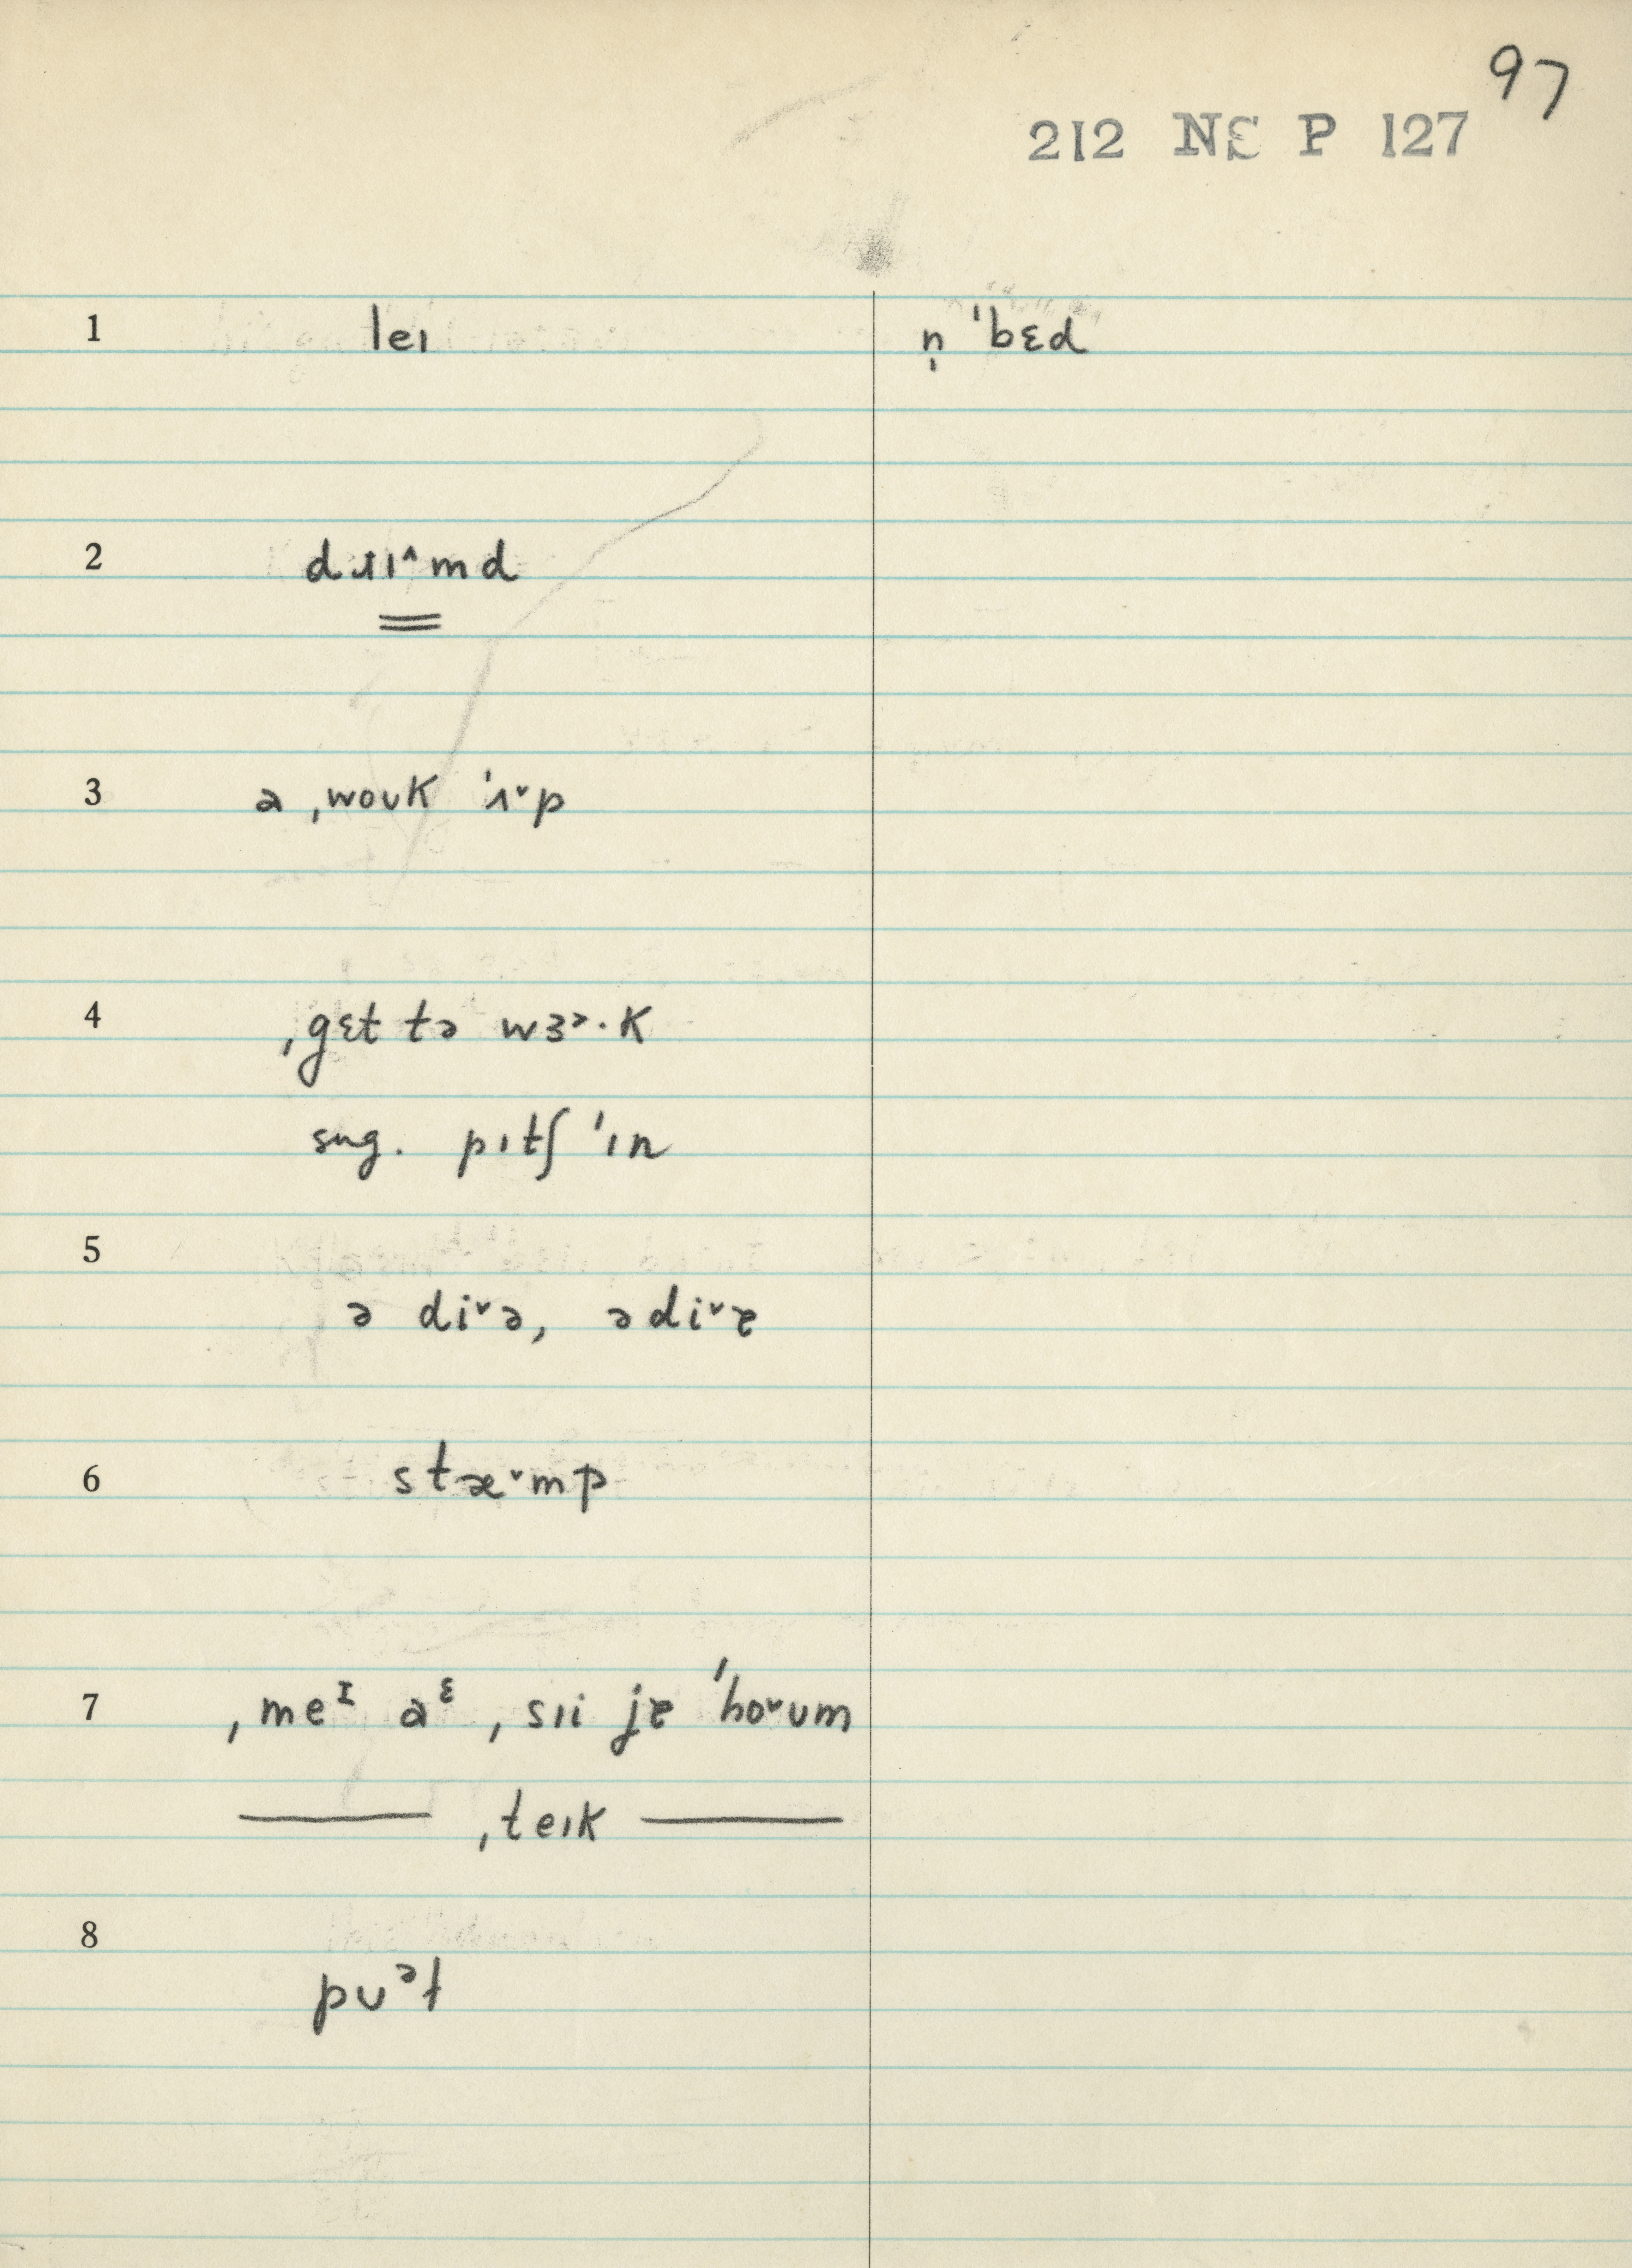 97
212 NE P 127
1 leɪ n̩ ˈbɛd
2 dɹɪ˄md
3 ə ˌwoʊk ˈʌ˅p
4 ˌgɛt tə wɜɚ·k
sug. pɪtʃ ˈɪn
5
ə di˅ə, ə di˅ɐ
6 stæ˅mp
7 ˌmeᶦ aᵋ ˌsɪi jɐ ˈho˅ʊm
——— ˌteɪk ———
8
pʊᵊt